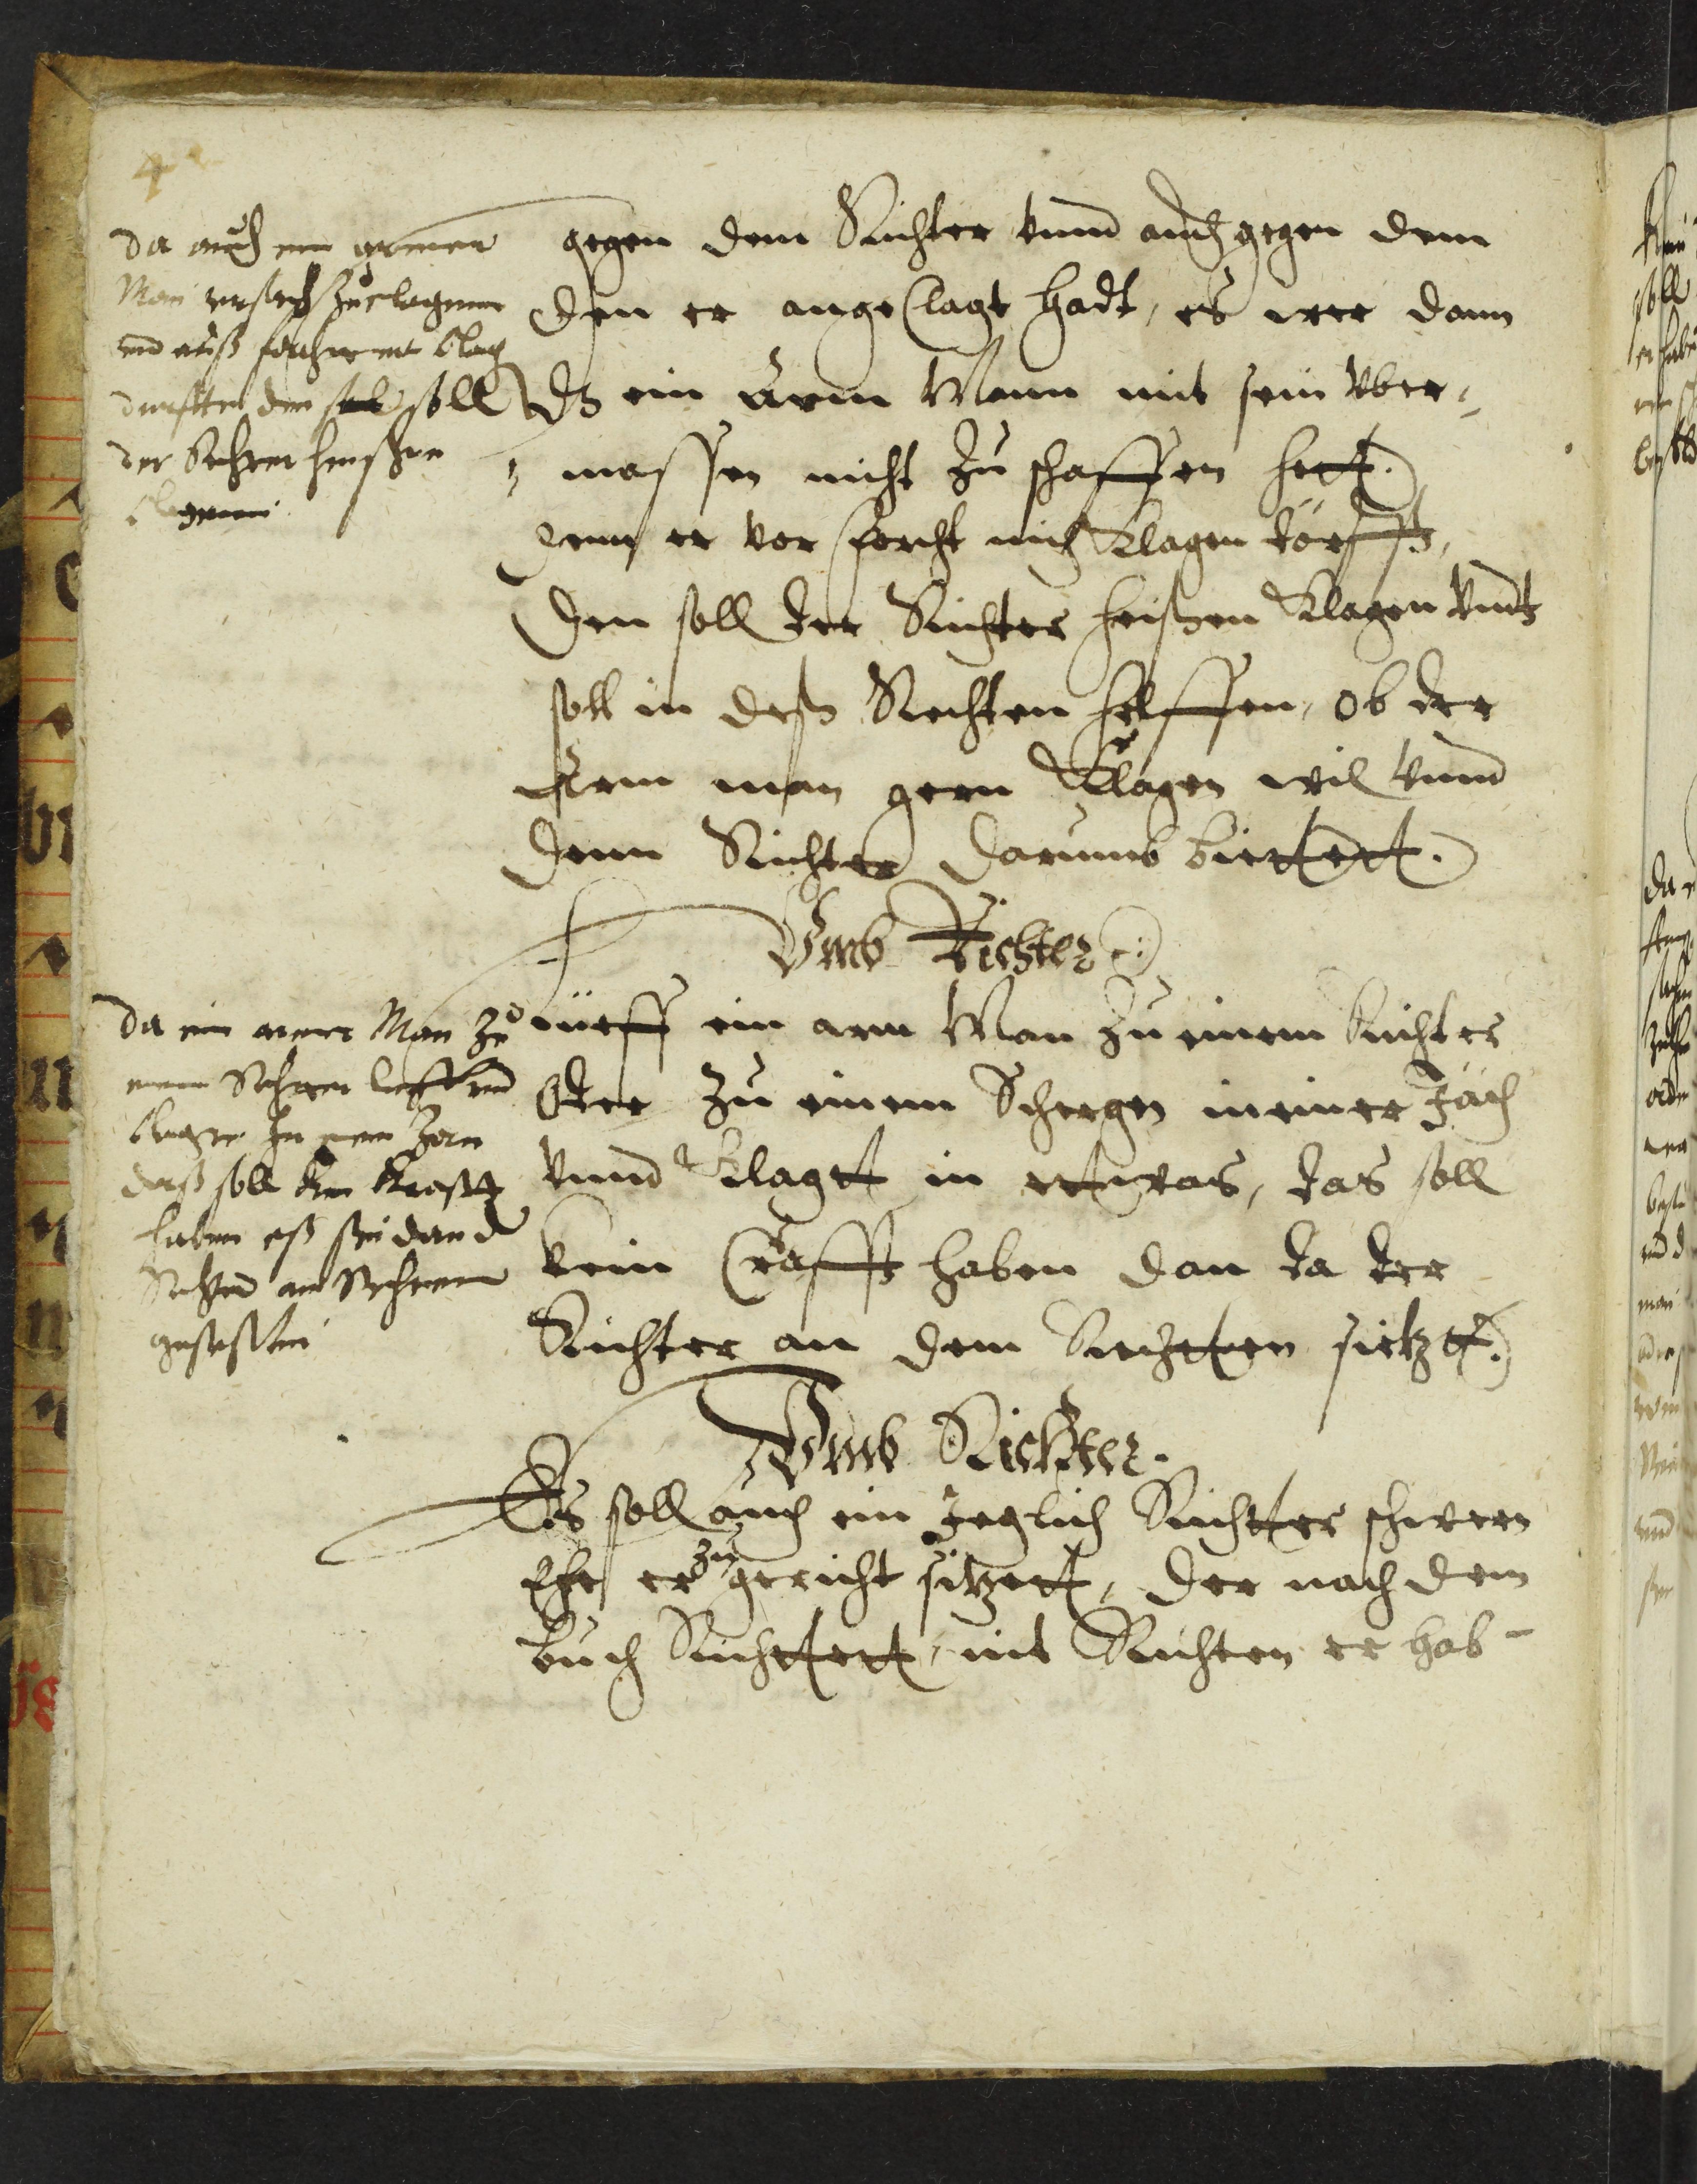 4
gegen dem Richter vnnd auch gegen dem
den er angeclagt hadt, es wer dann
dz ein Arm Mann mit sein vber=
massen nicht zu schaffen hett.
denn er vor forcht nich klagen dörfft,
den soll der Richter heissen klagen vndt
soll in dess Rechten helffen, ob der
Arm man gern klagen wil vnnd
denn Richter darumb bittett.
Vmb Richter
lüeff ein arm Man zu einem Richter
Oder zu einem Schergen in einer Jäch
vnnd klagtt in ettwas, das soll
kein Crafft haben dan da der
Richter an dem Rechtten sitztt.
Vmb Richter.
Es soll auch ein Jeglich Richtter schwern
Ehe er zu gericht sitzett, der nach dem
buch Richttett, mit Rechten er hab
da auch ein armer
Man vrsach zu clagenn
vnd auß forcht nit clag
durfften den soll
der Richter heissen
clagenn
da ein armer Man zu
einem Richter lieff vnd
clagte In einem Zorn
daß soll kein krafft
haben eß sei dan d
Richter am Rechtenn
gesessen